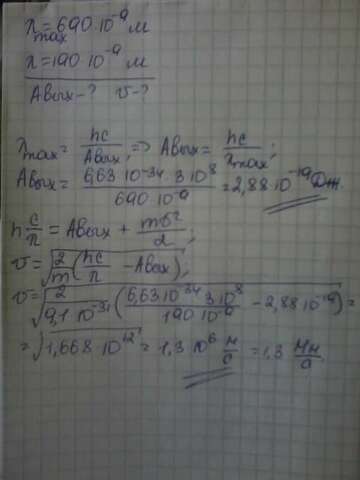 λmax = 690·10⁻⁹ м
λ = 190·10⁻⁹ м
Aвых - ? v - ?
λmax = hc/Aвых; => Aвых = hc/λmax;
Aвых = 6,63·10⁻³⁴·3·10⁸/690·10⁻⁹ = 2,88·10⁻¹⁹ Дж.
h c/λ = Aвых + mv²/2;
v = √(2/m (hc/λ - Aвых));
v = √(2/9,1·10⁻³¹ (6,63·10⁻³⁴·3·10⁸/190·10⁻⁹ - 2,88·10⁻¹⁹)) =
= √1,668·10¹² = 1,3·10⁶ м/с = 1,3 Мм/с